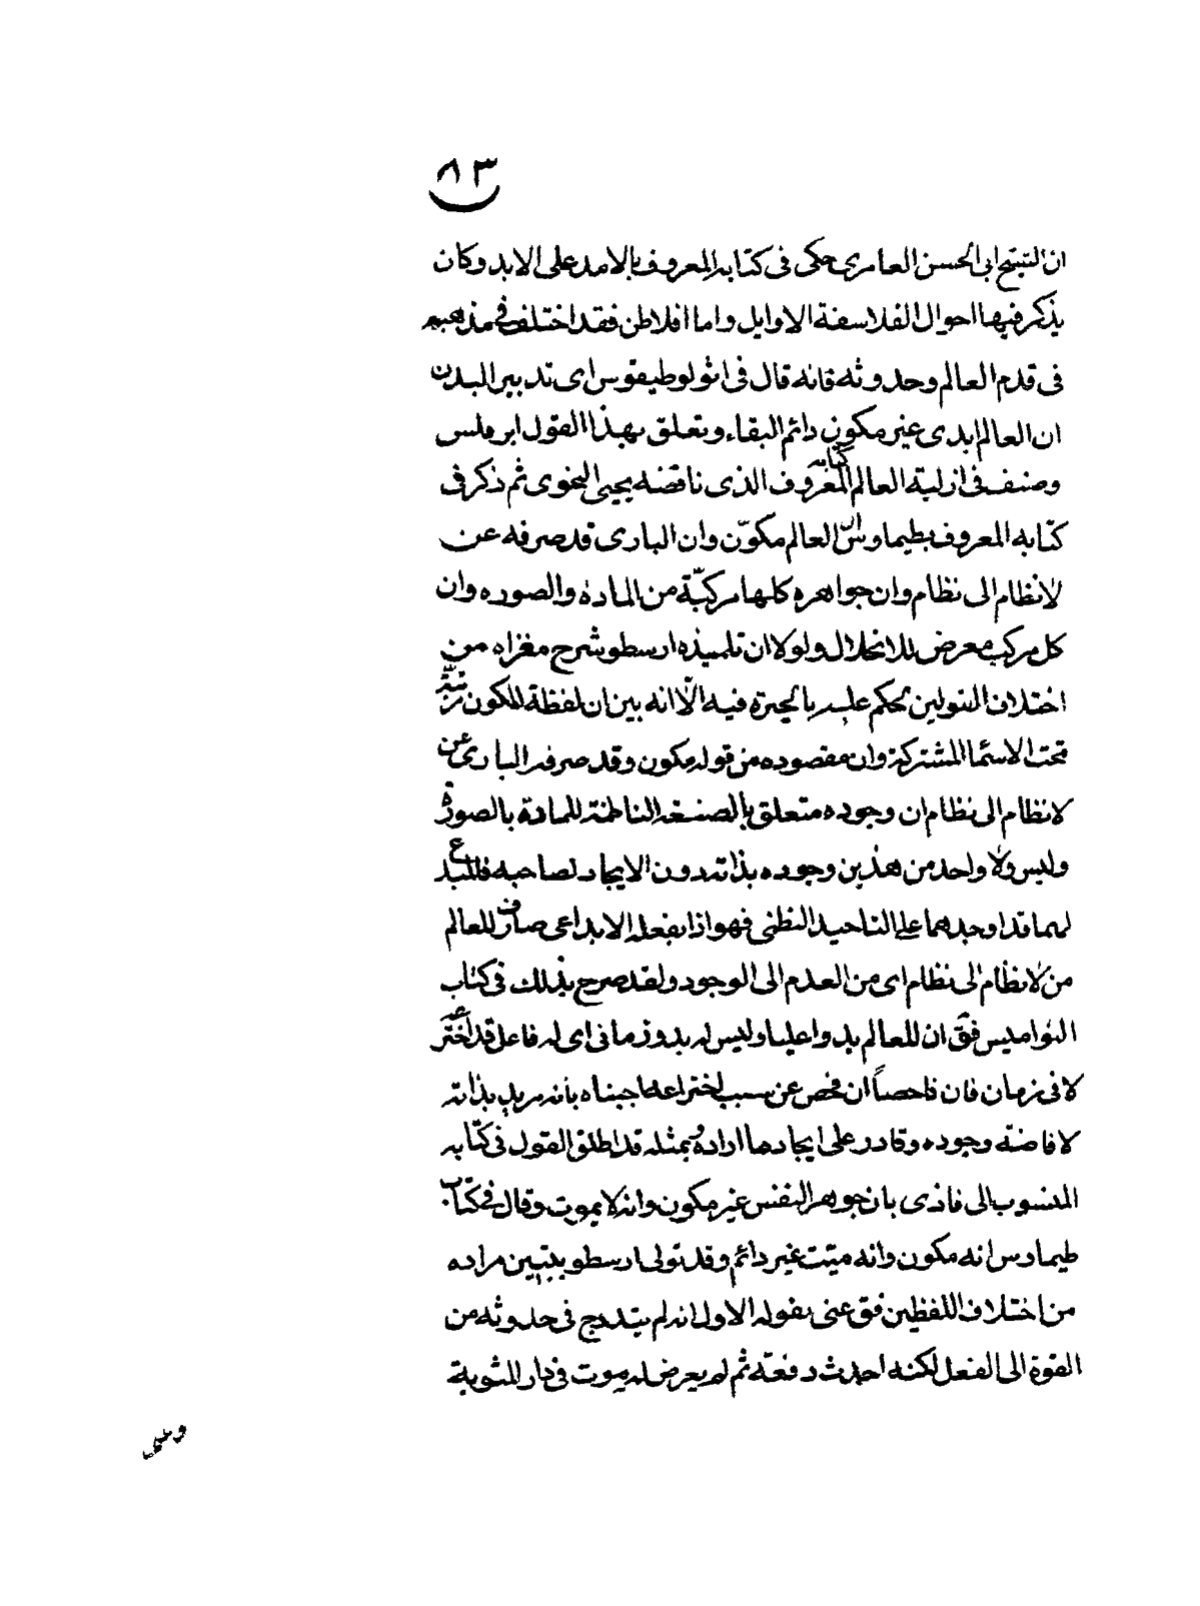 ٨٣
ان الشيخ ابى الحسن العامرى حكى فى كتابه المعروف بالامد على الابد وكان
يذكر فيها احوال الفلاسفة الاوايل واما افلاطن فقد اختلف فى مذهبه
فى قدم العالم وحدوثه فانه قال فى اثولوطيقوس اى تدبير البدن
ان العالم ابدى غير مكون دائم البقاء وتعلق بهذا القول ابرقلس
وصنف فى ازلية العالم كتابه المعروف الذى ناقضه يحيى النحوى ثم ذكر فى
كتابه المعروف بطيماوس ان العالم مكوّن وان البارى قد صرفه عن
لانظام الى نظام وان جواهره كلها مركبّة من المادة والصوره وان
كل مركب معرض للانحلال ولولا ان تلميذه ارسطو شرح مغزاه من
اختلاف القولين لحكم عليه بالحيرة فيه الّا انه بين ان لفظة المكون مرتبّة
تحت الاسما المشتركة وان مقصوده من قوله مكون وقد صرفه البارى عن
لانظام الى نظام ان وجوده متعلق بالصنعة الناظمة للمادة بالصورة
وليس ولا واحد من هذين وجوده بذاته دون الايجاد لصاحبه فالمبدع
لهما قد اوجدهما على التاحيد النظمى فهو اذا بفعله الابداعى صارف للعالم
من لانظام الى نظام اى من العدم الى الوجود ولقد صرح بذلك فى كتاب
النواميس فقَ ان للعالم بدوا عليا وليس له بدو زمانى اى له فاعل قد اخترعه
لا فى زمان فان فاحصاً ان فحص عن سبب اختراعه اجبناه بانه مريد بذاته
لافاضة وجوده وقادر على ايجاد ما اراده وبمثله قد اطلق القول فى كتابه
المنسوب الى فاذى بان جوهر النفس غير مكون وانه لا يموت وقال فى كتاب
طيماوس انه مكون وانه ميّت غير دائم وقد تولى ارسطو بتبيين مراده
من اختلاف اللفظين فق عنى بقوله الاول انه لم يتدرج فى حدوثه من
القوة الى الفعل لكنه احدث دفعّه ثم لم يعرض له يموت فى دار المثوبة